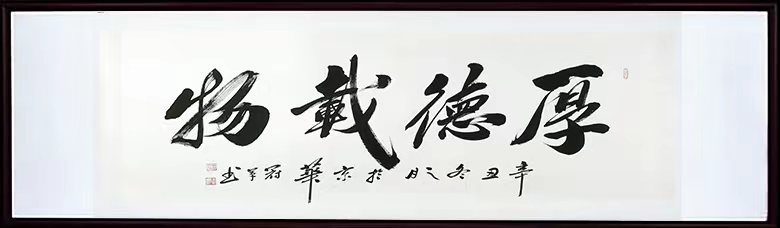 厚德載物
辛丑冬之月於京華冠军书